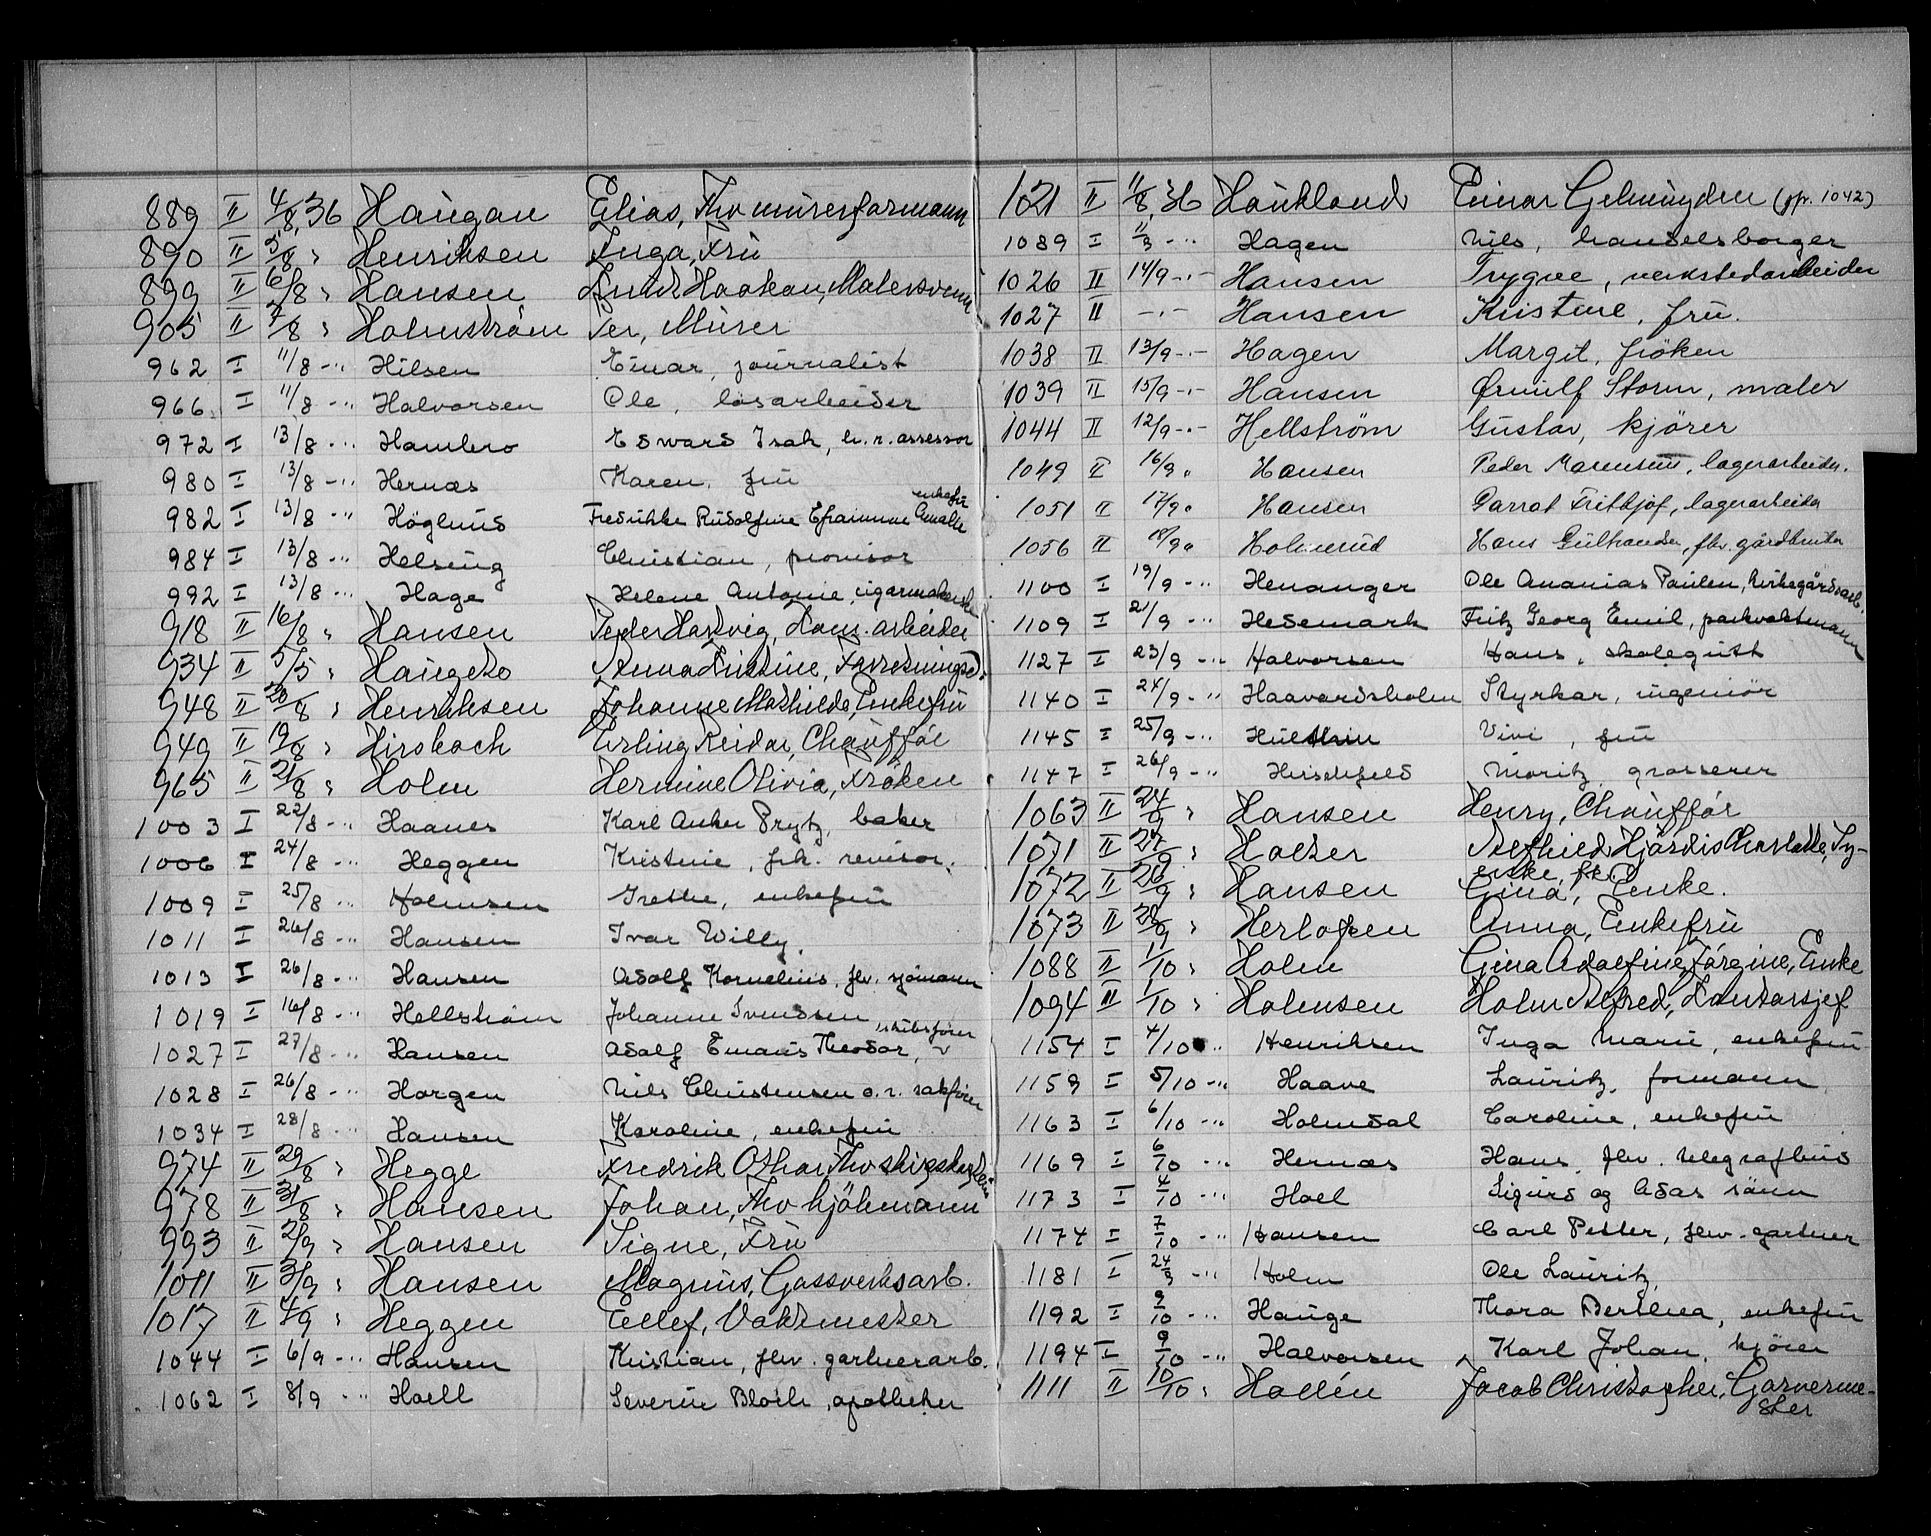 889 II 4/8, 36 Haugan Elias, Fhv murerformann
890 II 5/8 " Henriksen Inga, Fru
899 II 6/8 " Hansen Haakon, Malersvenn
905 II 7/8 " Holmström Per, Murer
962 I 11/8 -"- Hilsen Einar, journalist
966 I 11/8 -"- Halvorsen Ole, løsarbeider
972 I 13/8 -"- Hambro Edvard Isak, h. r. assessor
980 I 13/8 -"- Hernæs Karen, fru
982 I 13/8 -"- Höglund Fredrikke Rudolfine Efraimine Amalie enkefru
984 I 13/8 -"- Helsing Christian, provisor
992 I 13/8 -"- Hage Helene Antonie, cigarmakerske
918 II 16/8 " Hansen Peder Hartvig, Kom. arbeider
934 II 5/5 " Haugebo Anna Kristine, Forretningsd.
948 II 20/8 " Henriksen Johanne Mathilde, Enkefru
949 II 19/8 " Hirsbach Erling Reidar, Chauffør
965 II 21/8 " Holm Hermine Olivia, Frøken
1003 I 22/8 -"- Haanes Karl Anker Prytz, baker
1006 I 24/8 -"- Heggen Kristine, frk. revisor.
1009 I 25/8 -"- Holmsen Grethe, enkefru
1011 I 26/8 -"- Hansen Ivar Willy.
1013 I 26/8 -"- Hansen Adolf Kornelius, fhv. sjømann
1019 I 16/8 -"- Hellstrøm Johanne Svendsen
1027 I 27/8 -"- Hansen Adolf Emaus Theodor, skibsfører
1028 I 26/8 -"- Horgen Nils Christensen o. r. sakfører
1034 I 28/8 -"- Hansen Karoline, enkefru
974 II 29/8 " Hegge Fredrik Othar, Fhv
978 II 31/8 " Hansen Johan, Fhv kjöhmann
993 II 2/9 " Hansen Signe, Fru
1011 II 3/9 " Hansen Magnus, Gassverksarb.
1017 II 4/9 " Heggen Eilef, Vaktmester
1044 I 6/9 -"- Hansen Kristian, fhv. gartnerarb.
1062 I 8/9 -"- Hoell Severin Bloch, apotheker
121 II 11/8, 36 Haukland Einar Gelmuyden (fr. 1042)
1089 I 11/9 -"- Hagen Nils, handelsborger
1026 II 14/9 -"- Hansen Trygve, verkstedarbeider
1027 II -"- Hansen Kristine, fru.
1038 II 13/9 -"- Hagen Margit, frøken
1039 II 15/9 -"- Hansen Ørnulf Storm, maler
1044 II 12/9 -"- Hellstrøm Gustav, kjører
1049 II 16/9 " Hansen Peder Marensius, lagerarbeider.
1051 II 17/9 " Hansen Garrat Fritbjof, lagerarbeider
1056 II 18/9 " Holmerud Hans Gulbrandsen, fhv. gårdbruker
1100 I 19/9 -"- Henanger Ole Ananias Paulen, kirkegårdsarb.
1109 I 21/9 -"- Hedemark Fritz Georg Emil, parkvaktmann
1127 I 23/9 -"- Halvorsen Hans, skolegutt
1140 I 24/9 -"- Haavardsholm Styrkar, ingeniør
1145 I 25/9 -"- Hulthin Vivi, fru
1147 I 26/9 -"- Hirschfeld Moritz, grosserer
1063 II 24/9 " Hansen Henry, Chauffør
1071 II 27/9 " Holter Alfhild Hjördis Charlotte, Sy-
erske, frk.
1072 II 26/9 " Hansen Gina, Enke.
1073 II 28/9 " Herlofsen Anna, Enkefru
1088 II 1/10 " Holm Gina Adolfine Jörgine, Enke
1094 II 1/10 " Holmsen Holm Alfred, Kontorsjef
1154 I 4/10 " Henriksen Inga Marie, enkefru
1159 I 5/10 -"- Haave Lauritz, formann
1163 I 6/10 -"- Holmdal Caroline, enkefru
1169 I 6/10 -"- Hernæs Hans, fhv. telegrafbud
1173 I 4/10 -"- Hoel Sigurd og Adas sønn
1174 I 7/10 -"- Hansen Carl Petter, fhv. gartner
1181 I 24/9 -"- Holm Ole Lauritz,
1192 I 9/10 -"- Hauge Thora Berthea, enkefru
1194 I 9/10 -"- Halvorsen Karl Johan, kjører
1111 II 10/10 " Hallén Jacob Christopher, Garverme-
ster